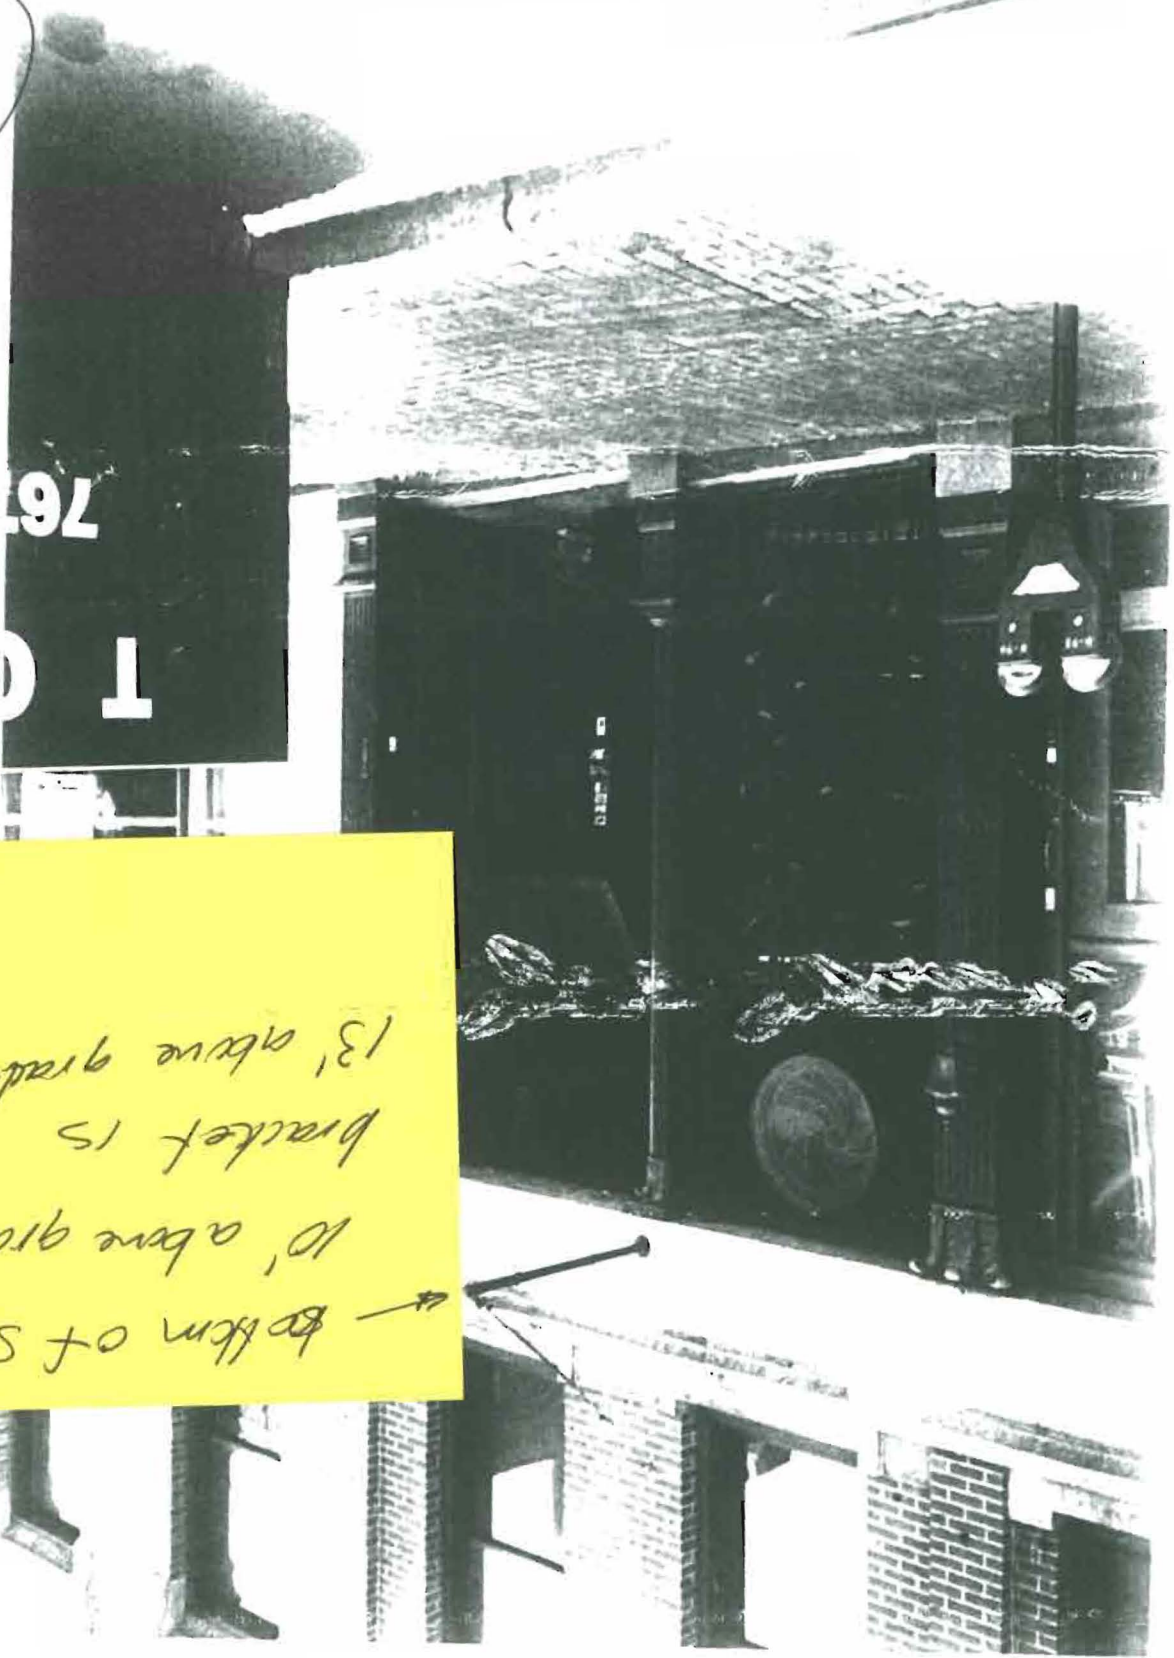 ← bottom of S
10' above gra
bracket is
13' above grad
T
76